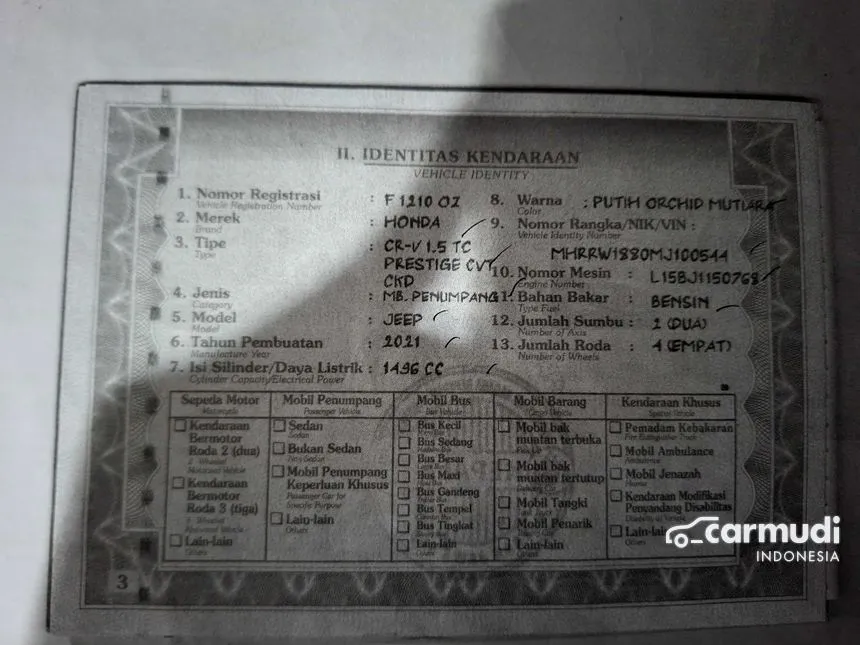 II. IDENTITAS KENDARAAN
VEHICLE IDENTITY
1. Nomor Registrasi : F 1210 OZ
Vehicle Registration Number
2. Merek : HONDA
Brand
3. Tipe : CR-V 1.5 TC
Type
PRESTIGE CVT
CKD
4. Jenis : MB. PENUMPANG
Category
5. Model : JEEP
Model
6. Tahun Pembuatan : 2021
Manufacture Year
7. Isi Silinder/Daya Listrik : 1496 CC
Cylinder Capacity/Electrical Power
8. Warna : PUTIH ORCHID MUTIARA
Color
9. Nomor Rangka/NIK/VIN :
Vehicle Identity Number
MHRRW1880MJ100544
10. Nomor Mesin : L15BJ1150768
Engine Number
11. Bahan Bakar : BENSIN
Type Fuel
12. Jumlah Sumbu : 2 (DUA)
Number of Axis
13. Jumlah Roda : 4 (EMPAT)
Number of Wheels
Sepeda Motor
Motorcycle
Kendaraan
Bermotor
Roda 2 (dua)
Kendaraan
Bermotor
Roda 3 (tiga)
Lain-lain
Others
Mobil Penumpang
Passenger Vehicle
Sedan
Sedan
Bukan Sedan
Non Sedan
Mobil Penumpang
Keperluan Khusus
Passenger Car for
Specific Purpose
Lain-lain
Others
Mobil Bus
Bus Vehicle
Bus Kecil
Bus Sedang
Bus Besar
Bus Maxi
Bus Gandeng
Bus Tempel
Bus Tingkat
Lain-lain
Others
Mobil Barang
Mobil bak
muatan terbuka
Mobil bak
muatan tertutup
Mobil Tangki
Mobil Penarik
Lain-lain
Others
Kendaraan Khusus
Special Vehicle
Pemadam Kebakaran
Mobil Ambulance
Ambulance
Mobil Jenazah
Kendaraan Modifikasi
Penyandang Disabilitas
Lain-lain
Others
3
carmudi
INDONESIA